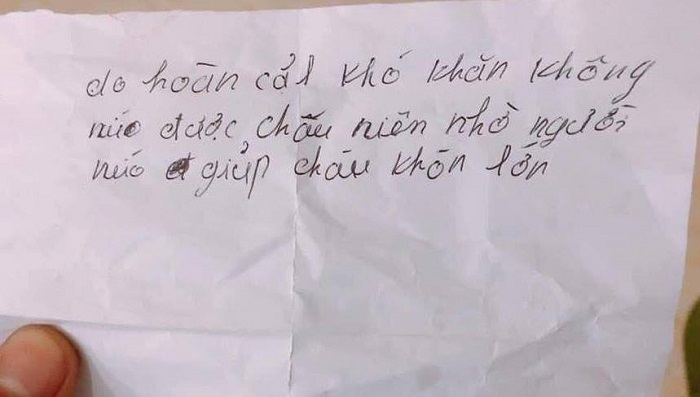 do hoàn cảl khó khăn không
núo được, chấu niên nhờ người
núo giúp cháu khôn lớn